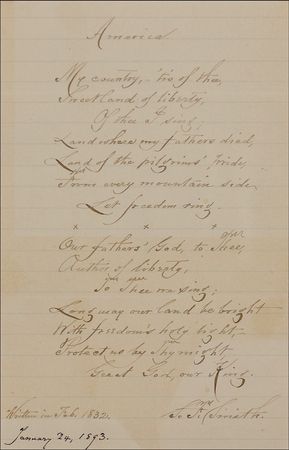 America
My country, 'tis of thee,
Sweet land of liberty,
Of thee I sing;
Land where my fathers died,
Land of the pilgrims' pride,
From every mountain side
Let freedom ring.
x x x
Our fathers' God, to Thee,
Author of liberty,
To Thee we sing;
Long may our land be bright
With freedom's holy light,
Protect us by Thy might
Great God, our King.
Written in Feb. 1832. S. F. Smith.
January 24, 1893.